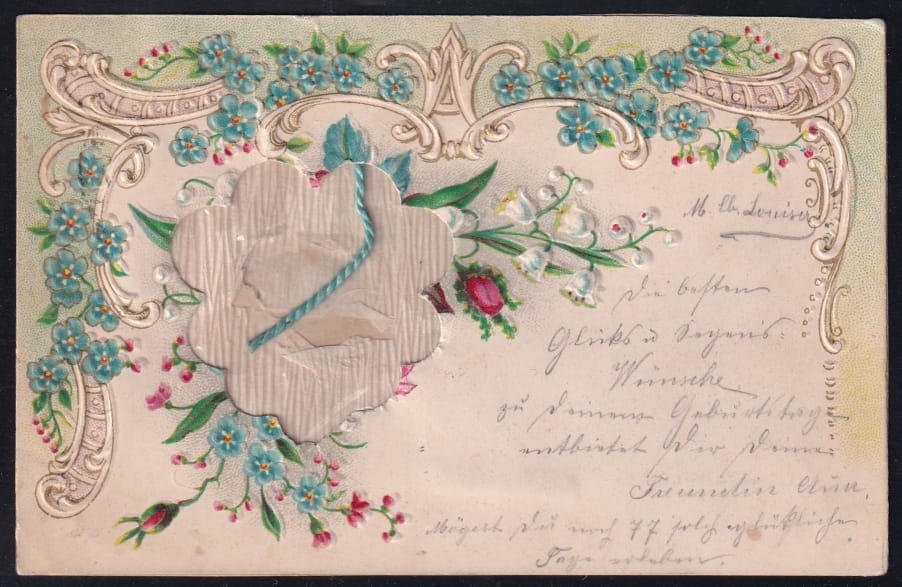 M. lb. Louise
Die besten
Glücks u Segens-
Wünsche
zu Deinem Geburtstage
entbietet Dir Deine
Freundin
Mögest Du noch 77 solch glückliche
Tage erleben.